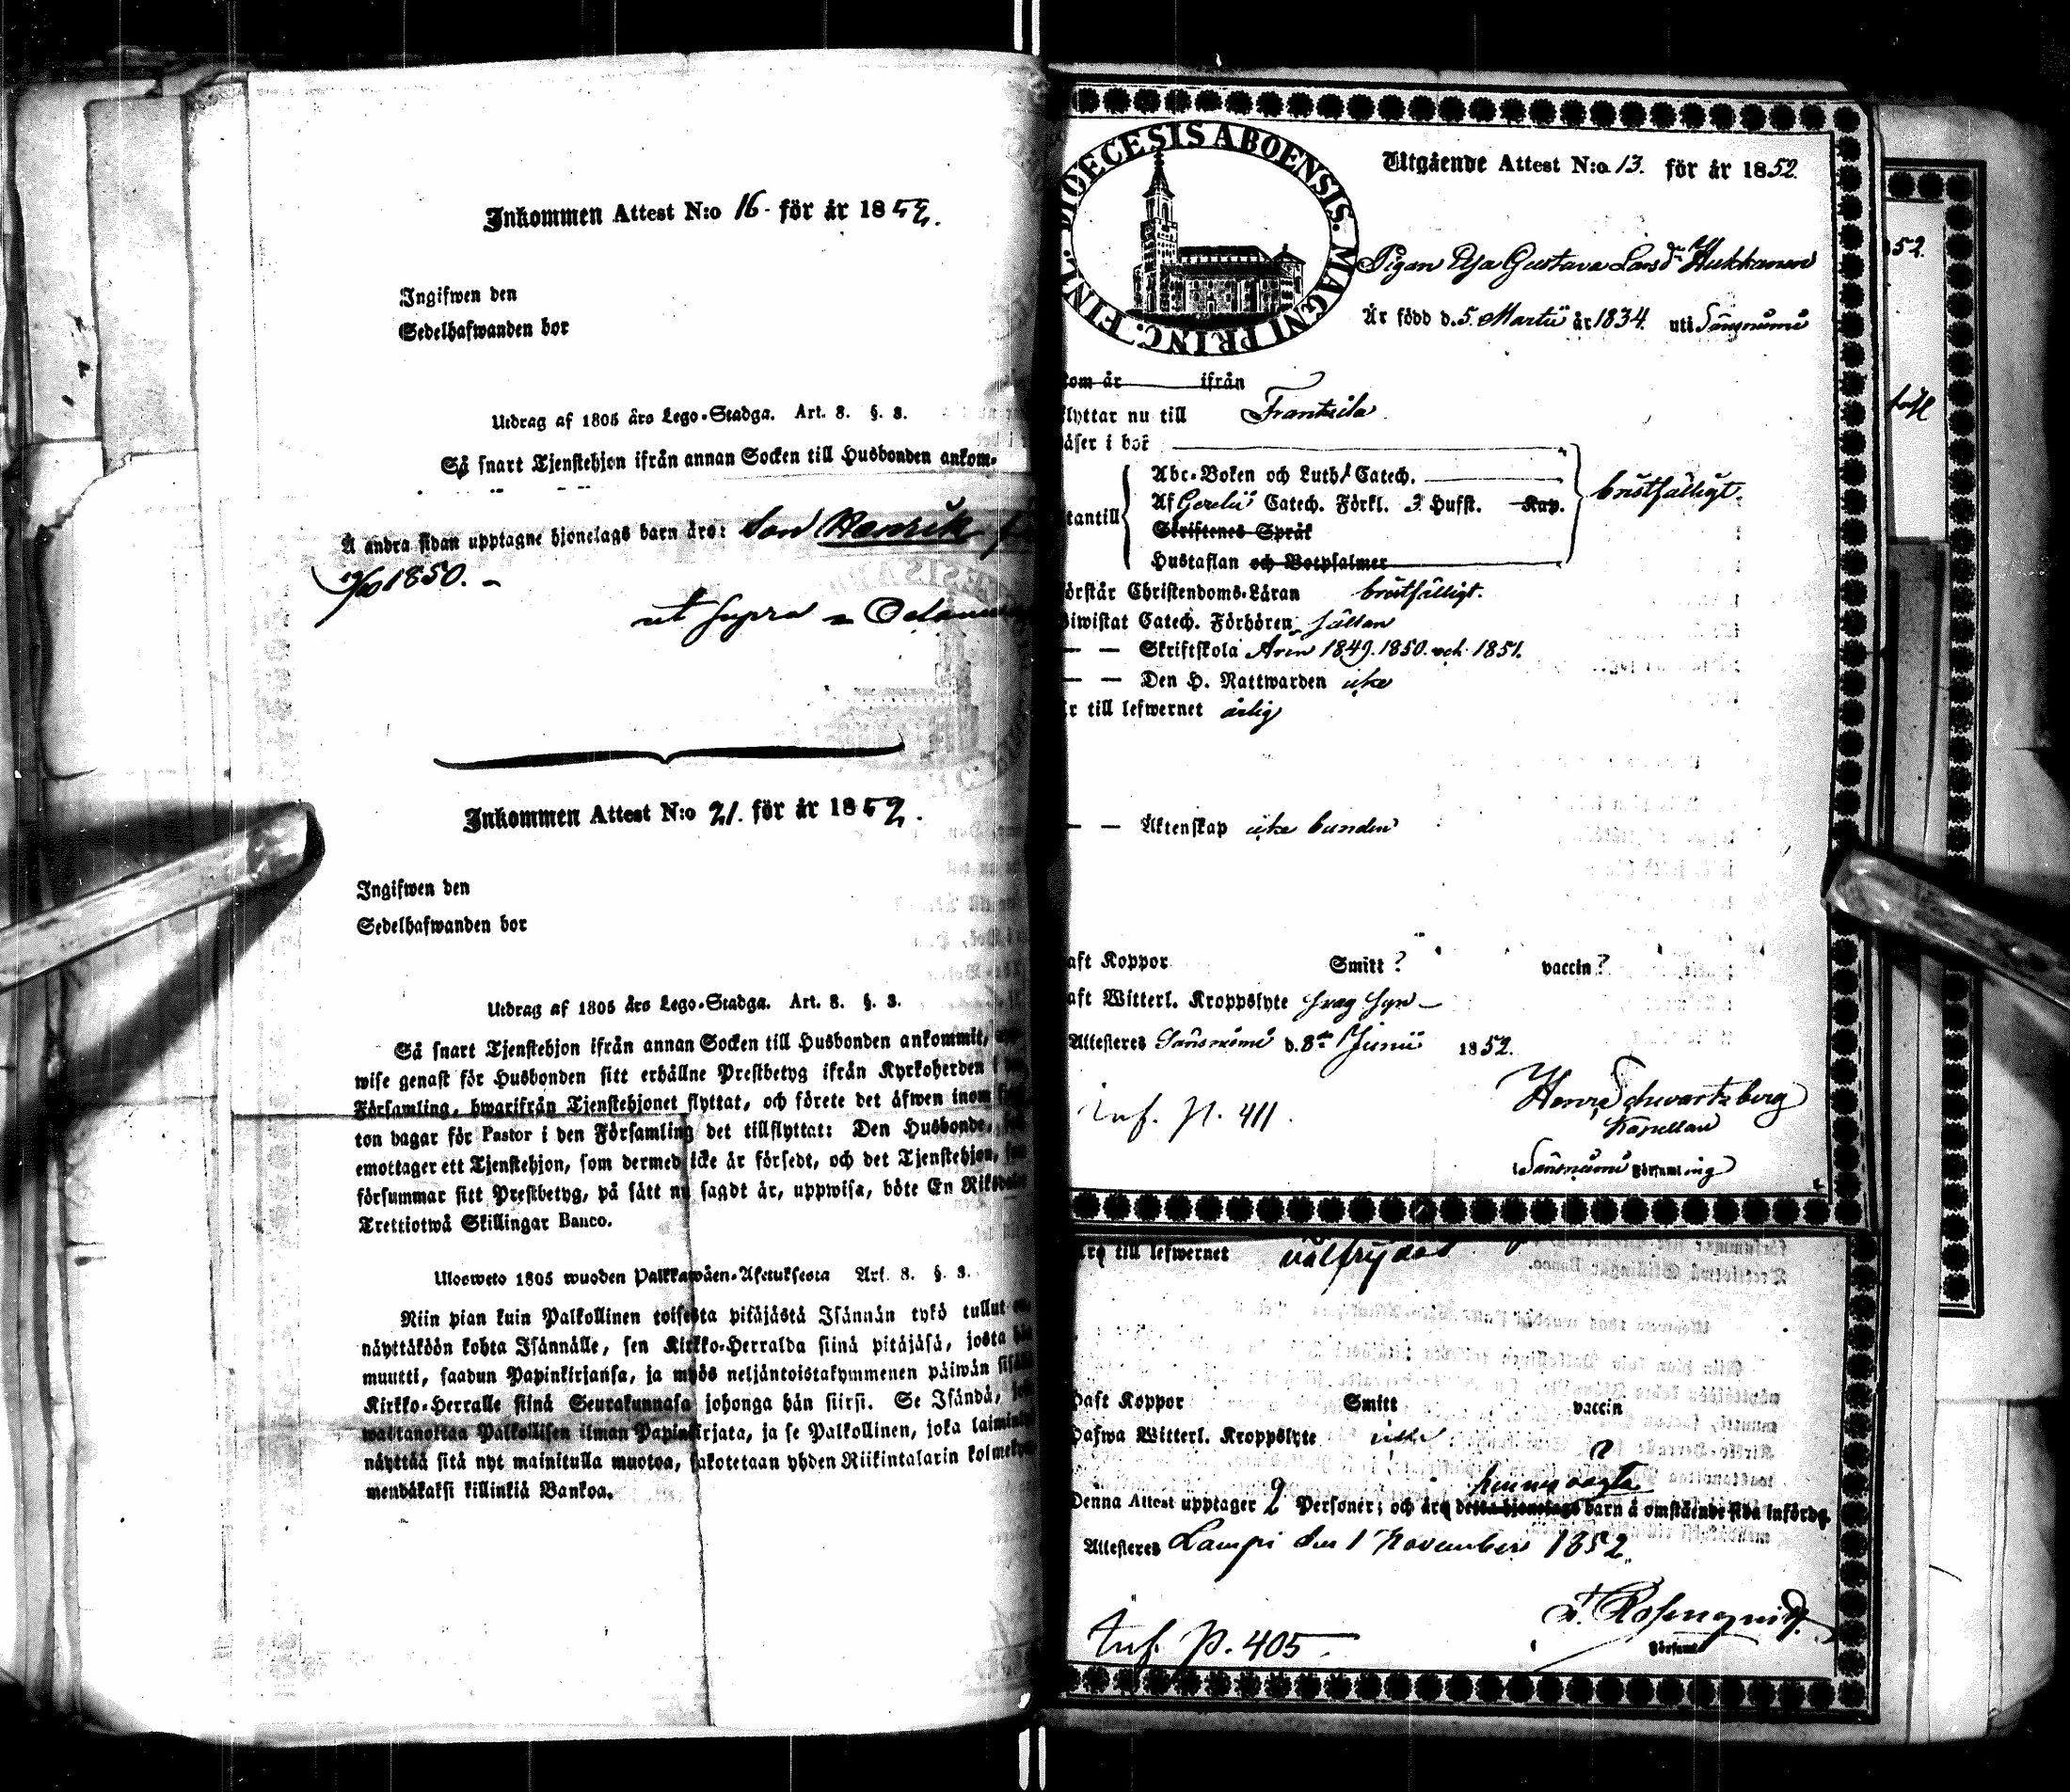 Inkommen Attest N:o 16. för år 1852.
Ingifwen den
Sedelhafwanden bor
Utdrag af 1805 års Lego-Stadga. Art. 8. §. 3.
Så snart Tjenstehjon ifrån annan Socken till Husbonden ankom-
Å andra sidan upptagne hjonelags barn äro: Son Henrik
1850. -
ut supra
Inkommen Attest N:o 21. för år 1852.
Ingifwen den
Sedelhafwanden bor
Utdrag af 1805 års Lego-Stadga. Art. 8. §. 3.
Så snart Tjenstehjon ifrån annan Socken till Husbonden ankommit,
wise genast för Husbonden sitt erhållne Prestbetyg ifrån Kyrkoherden i
Församling, hwarifrån Tjenstehjonet flyttat, och förete det äfwen inom
ton dagar för Pastor i den Församling det tillflyttat: Den Husbonde,
emottager ett Tjenstehjon, som dermed icke är försedt, och det Tjenstehjon,
försummar sitt Prestbetyg, på sätt nu sagdt är, uppwisa, böte En Riksdaler
Trettiotwå Skillingar Banco.
Ulosweto 1805 wuoden Palkkawäen-Asetuksesta Art. 8. §. 3.
Niin pian kuin Palkollinen toisesta pitäjästä Isännän tykö tullut on,
näyttäköön kohta Isännälle, sen Kirkko-Herralda siinä pitäjäsä, josta hän
muutti, saadun Papinkirjansa, ja myös neljäntoistakymmenen päiwän sisällä
Kirkko-Herralle siinä Seurakunnasa johonga hän siirsi. Se Isändä,
wastanottaa Palkollisen ilman Papinkirjata, ja se Palkollinen, joka laimin
näyttää sitä nyt mainitulla muotoa, sakotetaan yhden Riikintalarin kolmekym
mendäkaksi killinkiä Bankoa.
DIOECESIS ABOENSIS. MAGNI PRINC. FINL.
Utgående Attest N:o 13. för år 1852.
Pigan Eva Gustava Larsdr Hukkanen
Är född d. 5. Martii år 1834. uti Säräisniemi
kom år ifrån
flyttar nu till Frantsila
läser i bok
Abc-Boken och Luth. Catech.
utantill Af Gezelii Catech. Förkl. 3 Hufst. Kap. bristfälligt.
Skriftenes Språk
Hustaflan och Botpsalmer
förstår Christendoms-Läran bristfälligt.
biwistat Catech. Förhören sällan
— — Skriftskola Åren 1849. 1850. och 1851.
— — Den H. Nattwarden icke
är till lefwernet ärlig
— — Äktenskap icke bunden
haft Koppor Smitt ? vaccin ?
haft Witterl. Kroppslyte svag syn -
Attesteres Säräisniemi d. 8de Junii 1852.
Inf. p. 411. Henr. Schwartzberg
Kapellan
Säräisniemi Församling
äro till lefwernet välfrejdad
haft Koppor Smitt vaccin
hafwa Witterl. Kroppslyte icke ?
hennes oägta
Denna Attest upptager 2 Personer; och äro detta hjonelags barn å omstående sida införde.
Attesteres Lampi den 1 November 1852.
F. Rosenqvist.
Inf. p. 405. Församl.
52.